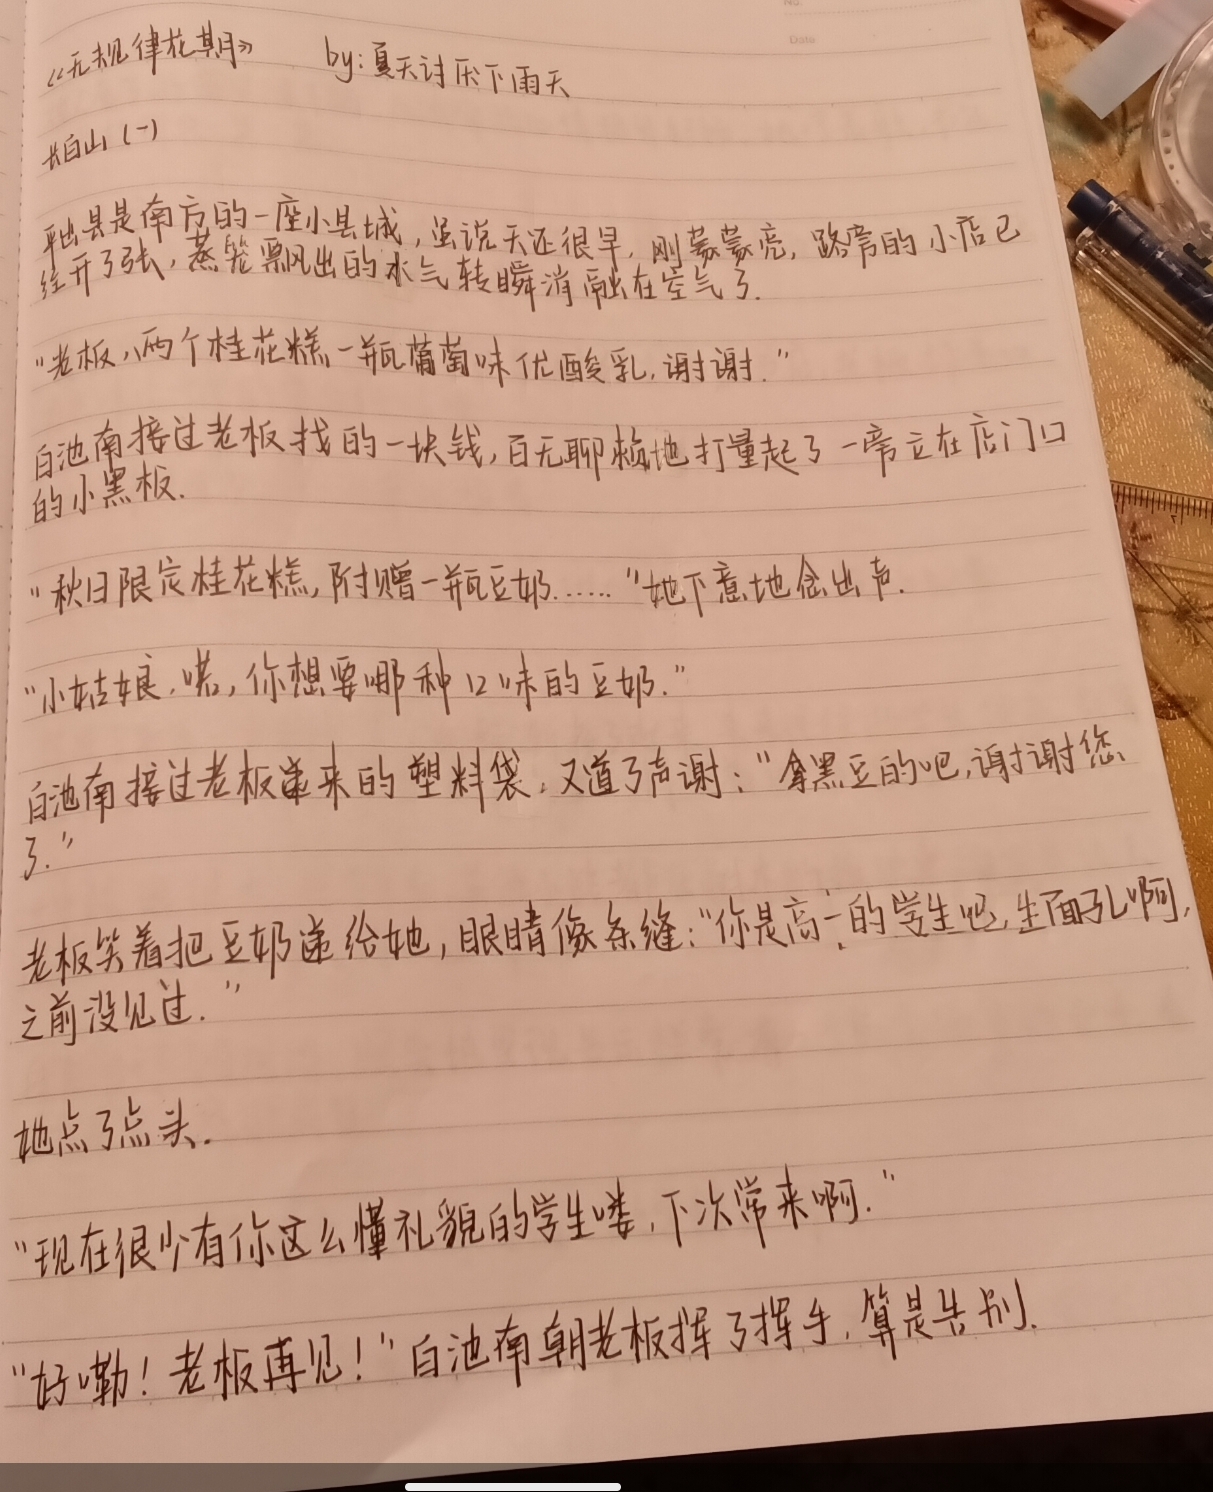 《无规律花期》 by:夏天讨厌下雨天
长白山(一)
县是南方的一座小县城,虽说天还很早,刚蒙蒙亮,路旁的小店已
经开了张,蒸笼飘出的水气转瞬消融在空气了.
"老板,两个桂花糕一瓶葡萄味优酸乳,谢谢."
白池南接过老板找的一块钱,百无聊赖地打量起了一旁立在店门口
的小黑板.
"秋日限定桂花糕,附赠一瓶豆奶......"她下意地念出声.
"小姑娘,喏,你想要哪种口味的豆奶."
白池南接过老板递来的塑料袋,又道了声谢:"拿黑豆的吧,谢谢您
了."
老板笑着把豆奶递给她,眼睛像条缝:"你是高一的学生吧,生面孔啊,
之前没见过."
她点了点头.
"现在很少有你这么懂礼貌的学生喽,下次常来啊."
"好嘞!老板再见!"白池南朝老板挥了挥手,算是告别.